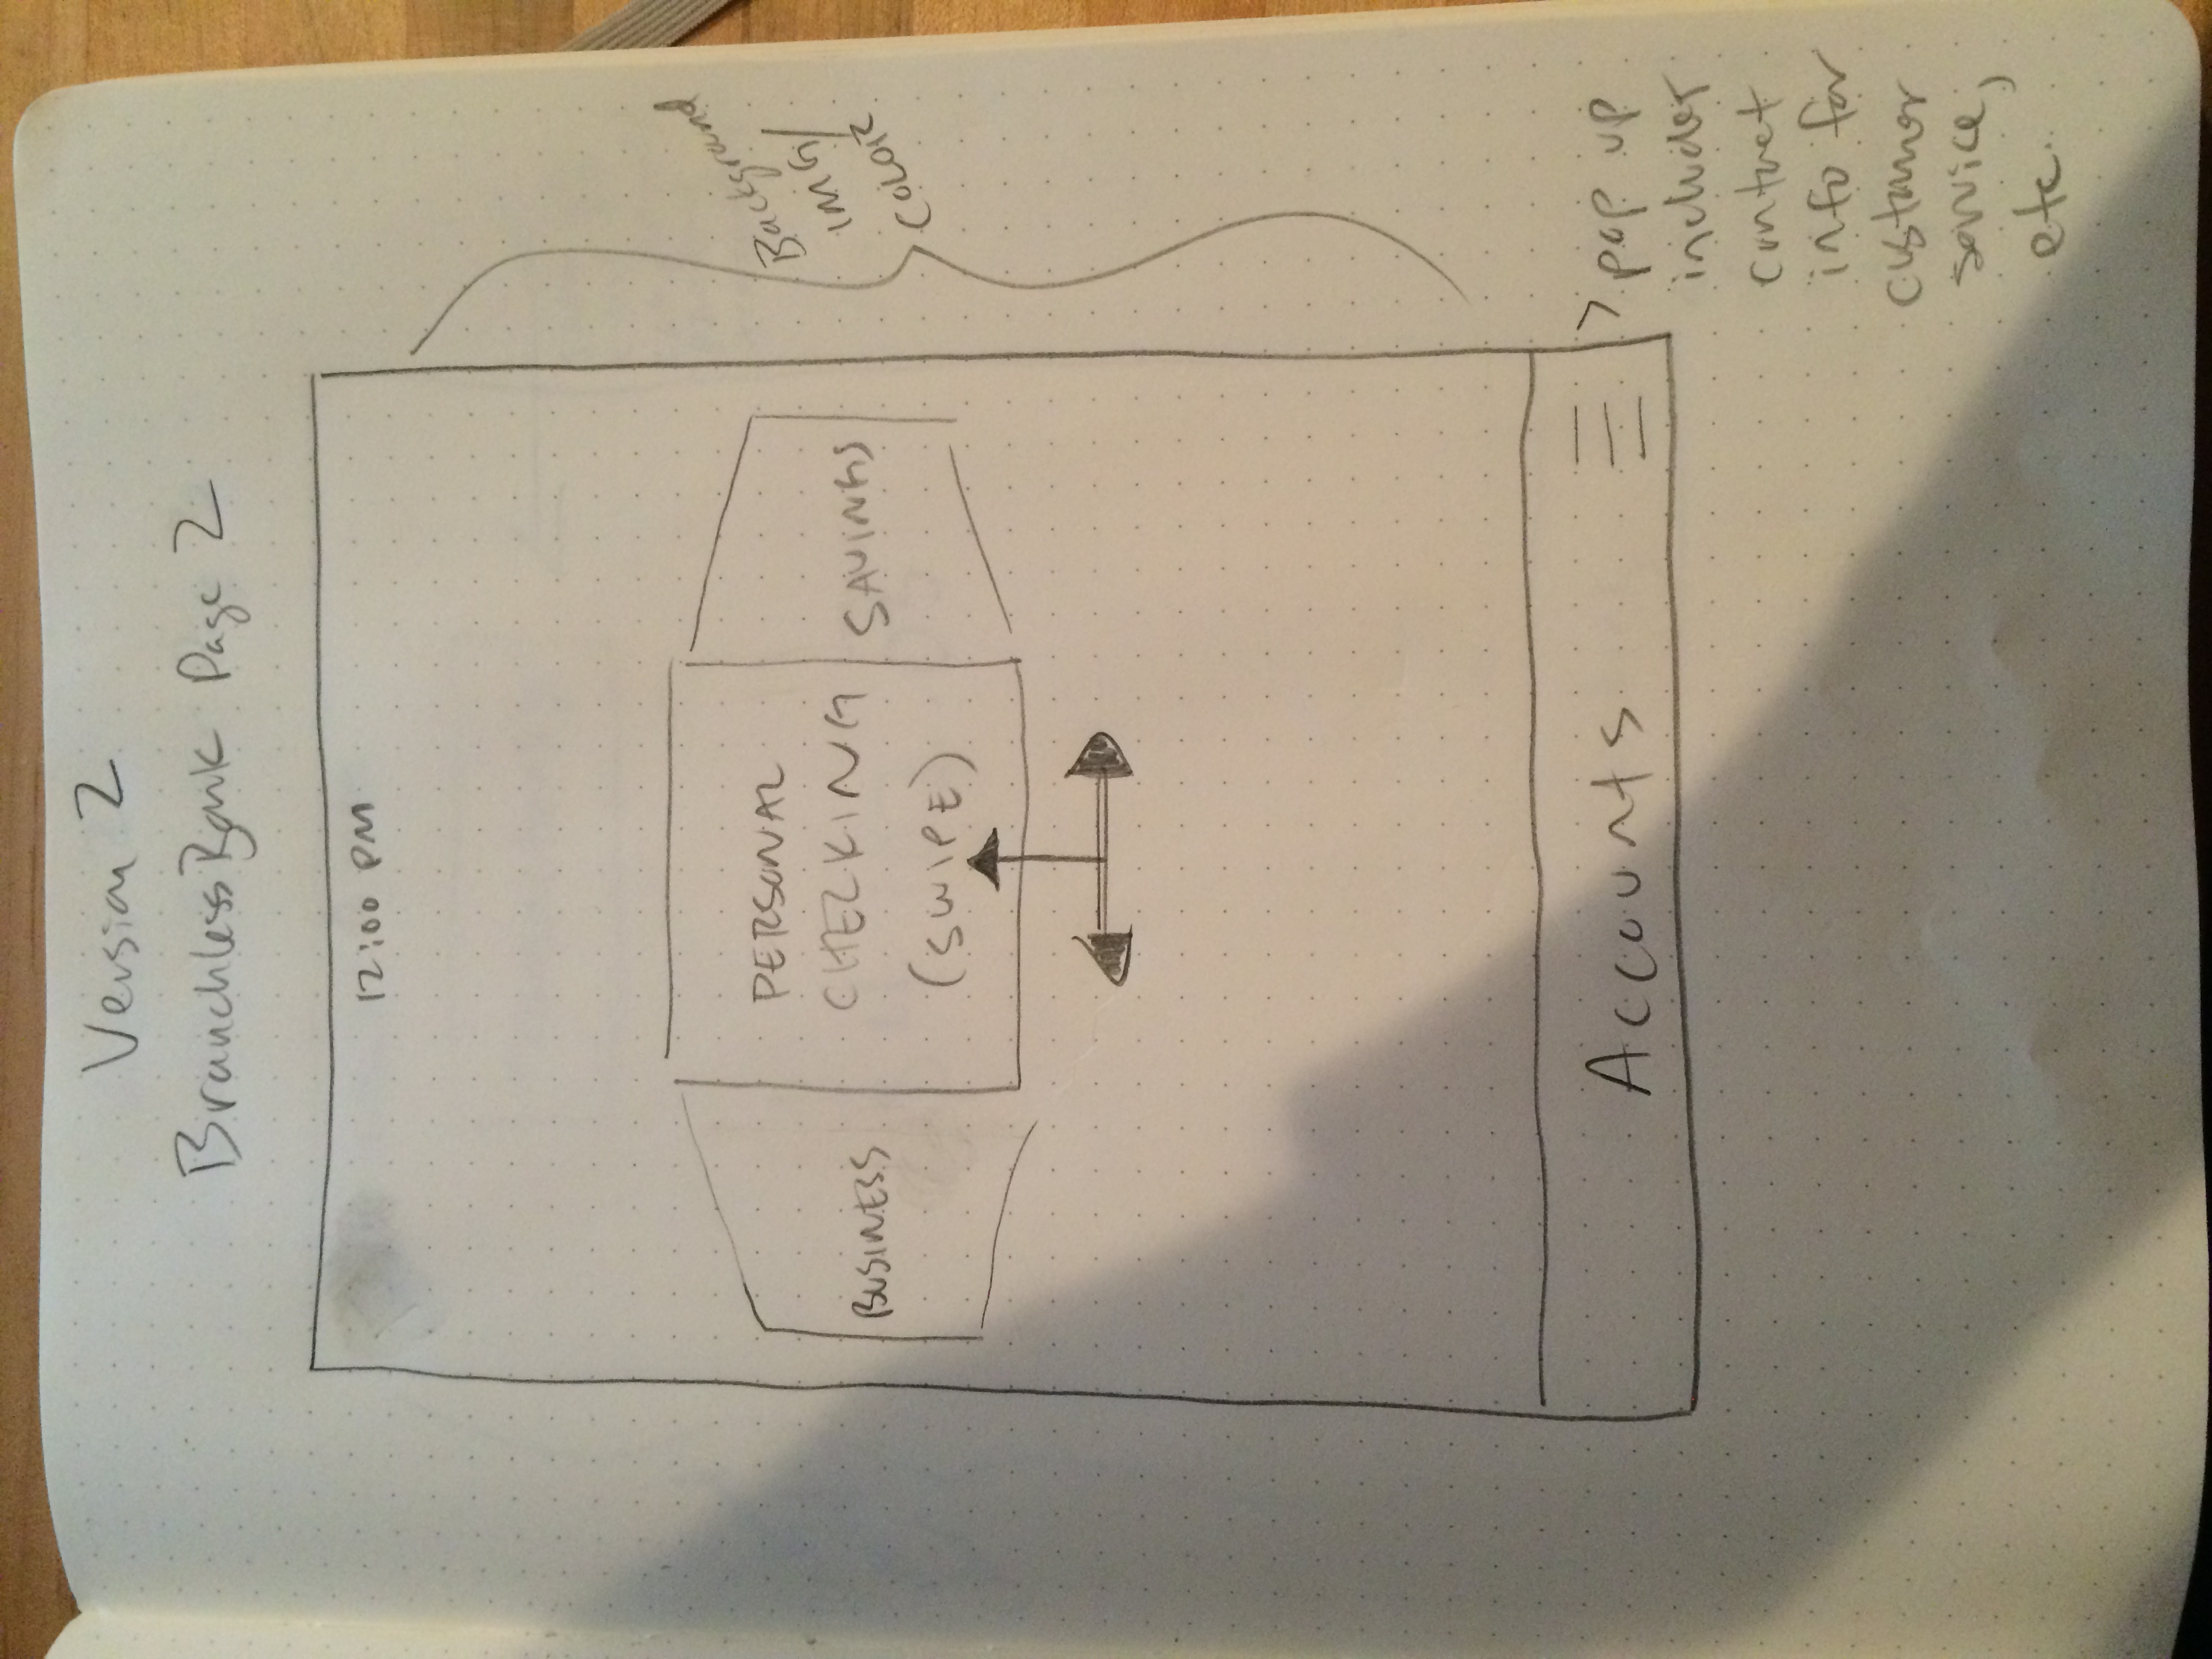 Version 2
BranchlessBank Page 2
12:00 PM
BUSINESS
PERSONAL
CHECKING
(SWIPE)
SAVINGS
Background
IMG/
COLOR
Accounts
> pop up
includes
contact
info for
customer
service,
etc.